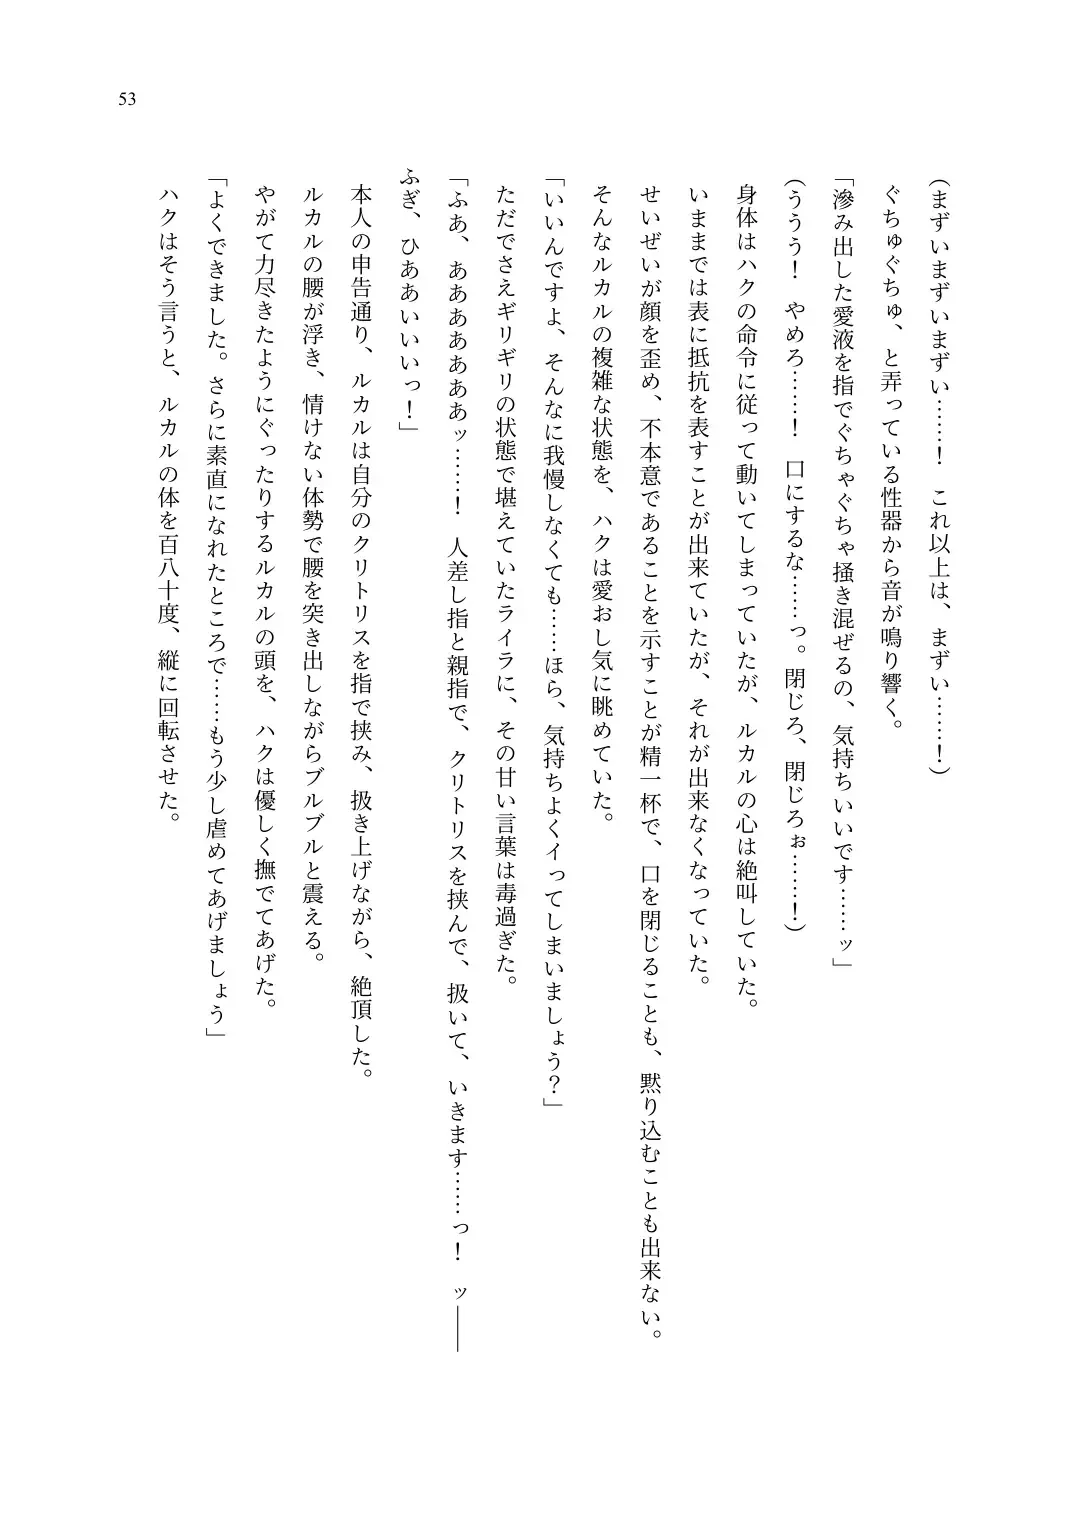 53
(まずいまずいまずい……！　これ以上は、まずい……！)
ぐちゅぐちゅ、と弄っている性器から音が鳴り響く。
「滲み出した愛液を指でぐちゃぐちゃ掻き混ぜるの、気持ちいいです……ッ」
(ううう！　やめろ……！　口にするな……っ。閉じろ、閉じろぉ……！)
身体はハクの命令に従って動いてしまっていたが、ルカルの心は絶叫していた。
いままでは表に抵抗を表すことが出来ていたが、それが出来なくなっていた。
せいぜいが顔を歪め、不本意であることを示すことが精一杯で、口を閉じることも、黙り込むことも出来ない。
そんなルカルの複雑な状態を、ハクは愛おし気に眺めていた。
「いいんですよ、そんなに我慢しなくても……ほら、気持ちよくイってしまいましょう？」
ただでさえギリギリの状態で堪えていたライラに、その甘い言葉は毒過ぎた。
「ふあ、ああああああッ……！　人差し指と親指で、クリトリスを挟んで、扱いて、いきます……っ！　ッ――
ふぎ、ひああいいいっ！」
本人の申告通り、ルカルは自分のクリトリスを指で挟み、扱き上げながら、絶頂した。
ルカルの腰が浮き、情けない体勢で腰を突き出しながらブルブルと震える。
やがて力尽きたようにぐったりするルカルの頭を、ハクは優しく撫でてあげた。
「よくできました。さらに素直になれたところで……もう少し虐めてあげましょう」
ハクはそう言うと、ルカルの体を百八十度、縦に回転させた。